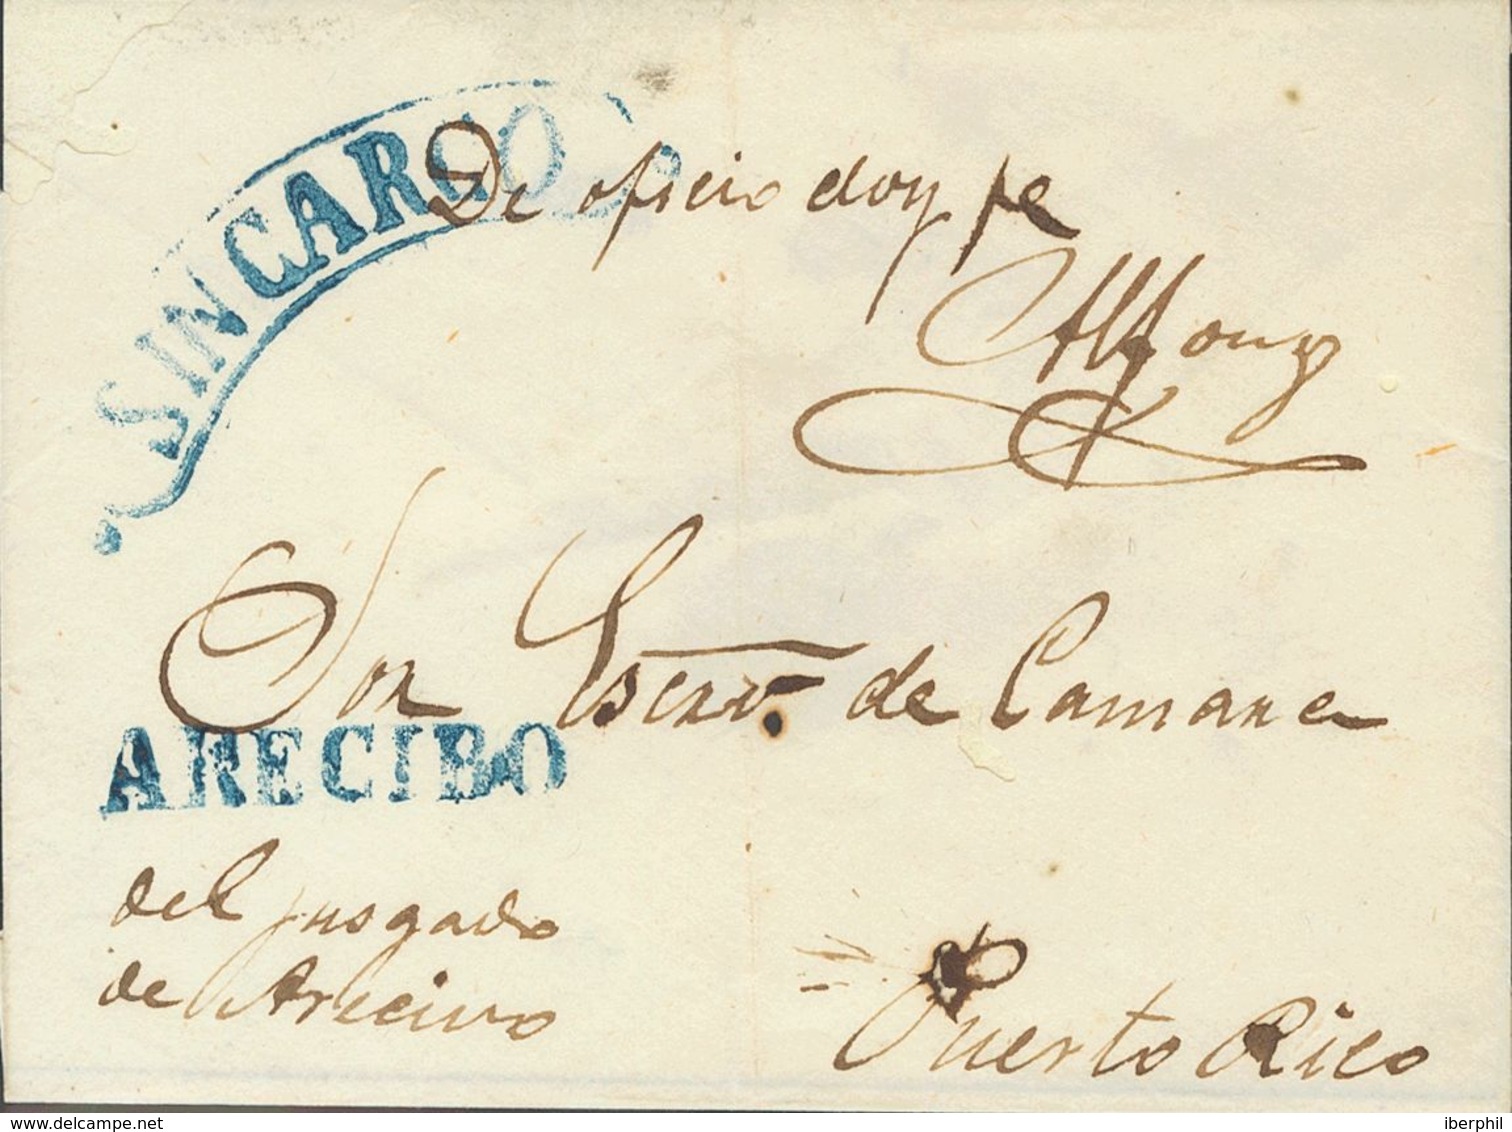 SIN CARGO
De oficio doy fe
Alfonzo
Sor Escrno. de Camara
ARECIBO
del jusgado
de Arecivo
Puerto Rico
delcampe.net
iberphil